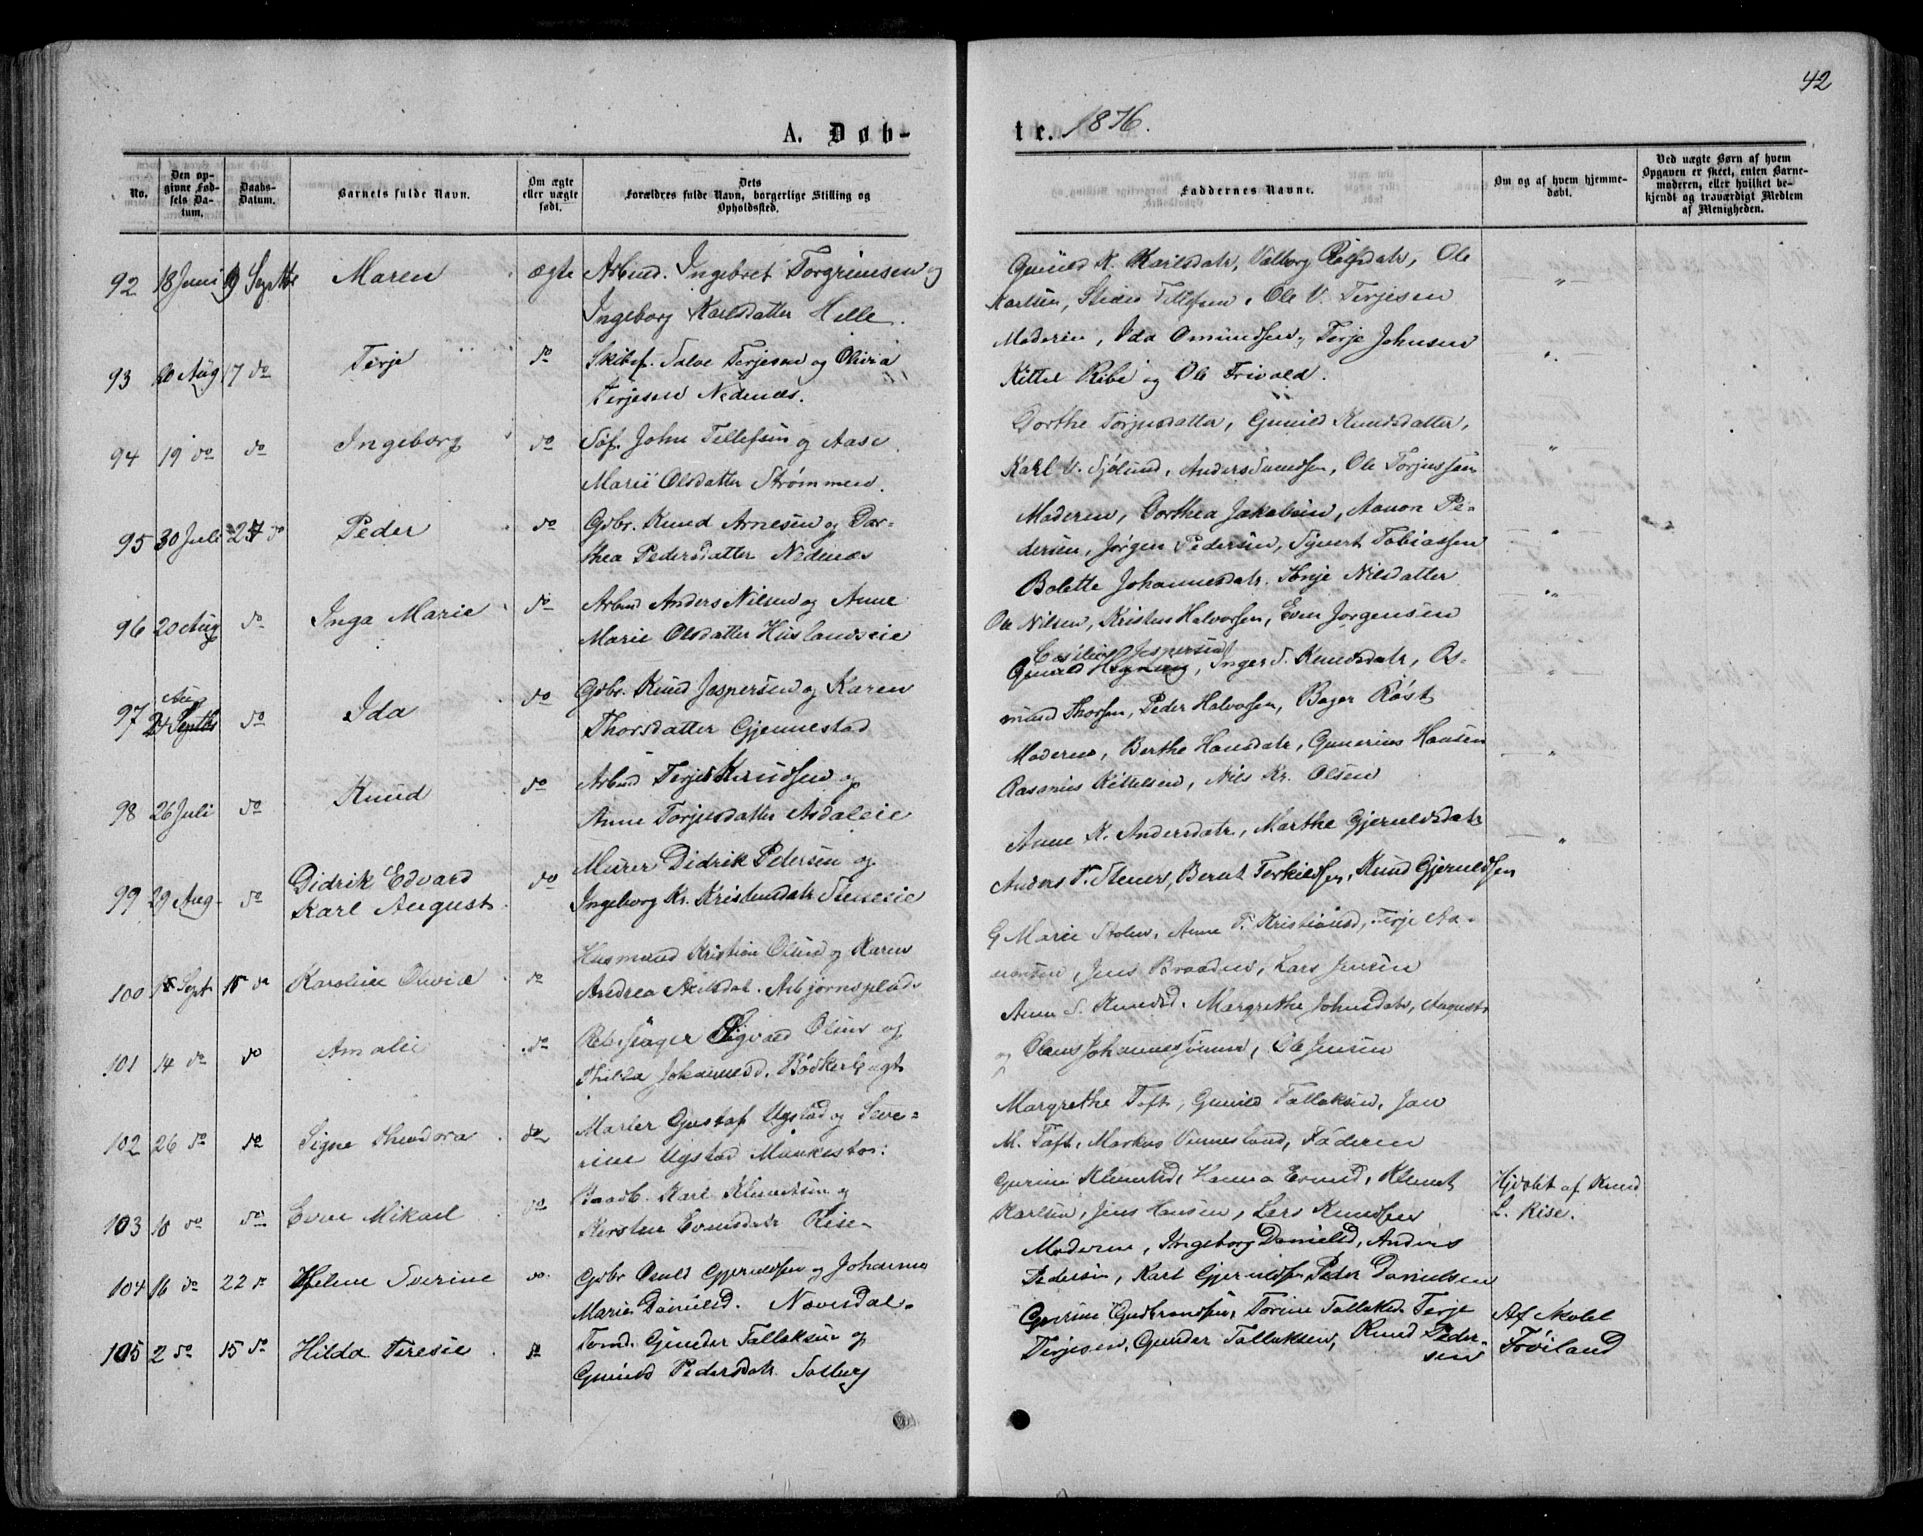 42
A. Døb-
te. 1876.
No.
Den op-
givne Fød-
sels Da-
tum.
Daabs-
Datum.
Barnets fulde Navn.
Om ægte
eller uægte
født.
Dets
Forældres fulde Navn, borgerlige Stilling og
Opholdssted.
Faddernes Navne.
Om og af hvem hjemme-
døbt.
Ved uægte Børn af hvem
Opgaven er skeet, enten Barne-
moderen, eller hvilket be-
kjendt og troværdigt Medlem
af Menigheden.
92 18 Juni Septbr Maren ægte Arbmd. Ingebret Torgrimsen og
Ingeborg Karlsdatter Helle.
Gunild K. Karlsdatr, Valborg Ole
Karlsen, Tellefsen, Ole V. Terjesen
93 20 Aug 17 do Terje do Skibsf. Salve Terjesen og Olivia
Terjesen Nedenæs.
Moderen, Ida Omundsen, Terje Johnsen
Kittel Ribe og Ole Trivold.
94 19 do do Ingeborg do Søf. John Tellefsen og Aase
Marie Olsdatter Strømmen.
Dorthe Torjusdatter, Gunild Knudsdatter,
Karl V. Sjølund, Anders Ole Torjussen
95 30 Juli 24 do Peder do Gdbr. Knud Arnesen og Dor-
thea Pedersdatter Nedenæs
Moderen, Dorthea Jakobsen, Aanon Pe-
dersen, Jørgen Pedersen, Syvert Tobiassen
96 20 Aug do Inga Marie do Arbmd Anders Nilsen og Anne
Marie Olsdatter Huslandseie
Bolette Johannesdatr. Nilsdatter
Ole Nilsen, Kristen Halvorsen, Even Jørgensen
97 Aug
24 Septbr do Ida do Gdbr. Knud Jespersen og Karen
Thorsdatter Gjennestad
Jespersen
Gunild Inger S. Knudsdatr, Os-
mund Thorsen, Peder Halvorsen, Bager Røst
98 26 Juli do Knud do Arbmd Terje Knudsen og
Anne Torjusdatter Asdaleie
Moderen, Berthe Hansdatr, Gunerius Hansen
Rasmus Kittelsen, Nils Kr. Olsen
99 29 Aug do Didrik Edvard
Karl August do Murer Didrik Pedersen og
Ingeborg Kr. Kristensdatr Steneeie
Anne K. Andersdatr, Marthe Gjeruldsdatr
Anders P. Stener, Bernt Terkildsen, Knud Gjeruldsen
100 Sept do Karoline Olivia do Husmand Kristian Olsen og Karen
Andrea Asbjørnsplads
G Marie Anne T. Kristiansd, Terje Aa-
nonsen, Jens Braaden, Lars Jensen
101 14 do do Amalie do Rebslager Sigvald Olsen og
Thilda Johannesd. Bødkerbugt
Anne S. Knudsd. Margrethe Johnsdatr, August
og Olaus Johannessønner, Ole Jensen
102 26 do do Signe Theodora do Maler Gustaf Ugstad og Seve-
rine Ugstad Munkestø:
Margrethe Toft, Gunild Tallaksen, Jan
M. Toft, Markus Vennesland, Faderen
103 10 do do Even Mikael do Baadb. Karl Klemetsen og
Kirsten Evensdatr Rise
Gurine Klemetsd, Hanna Evensd, Klemet
Karlsen, Jens Hansen, Lars Knudsen
Hjdøbt af Knud
L. Rise.
104 16 do 22 do Helene Severine do Gdbr Osuld Gjeruldsen og Johanne
Marie Danielsd. Novesdal
Moderen, Ingeborg Danielsd, Anders
Pedersen, Karl Gjeruldsen, Peder Danielsen
105 2 do 15 do Hilda Teresie do Tomd. Gunder Tallaksen og
Gunild Pedersdatr Solberg
Gurine Gudbrandsen, Torine Tallaksd. Terje
Terjesen, Gunder Tallaksen, Knud Peder-
sen
Af
Frøiland